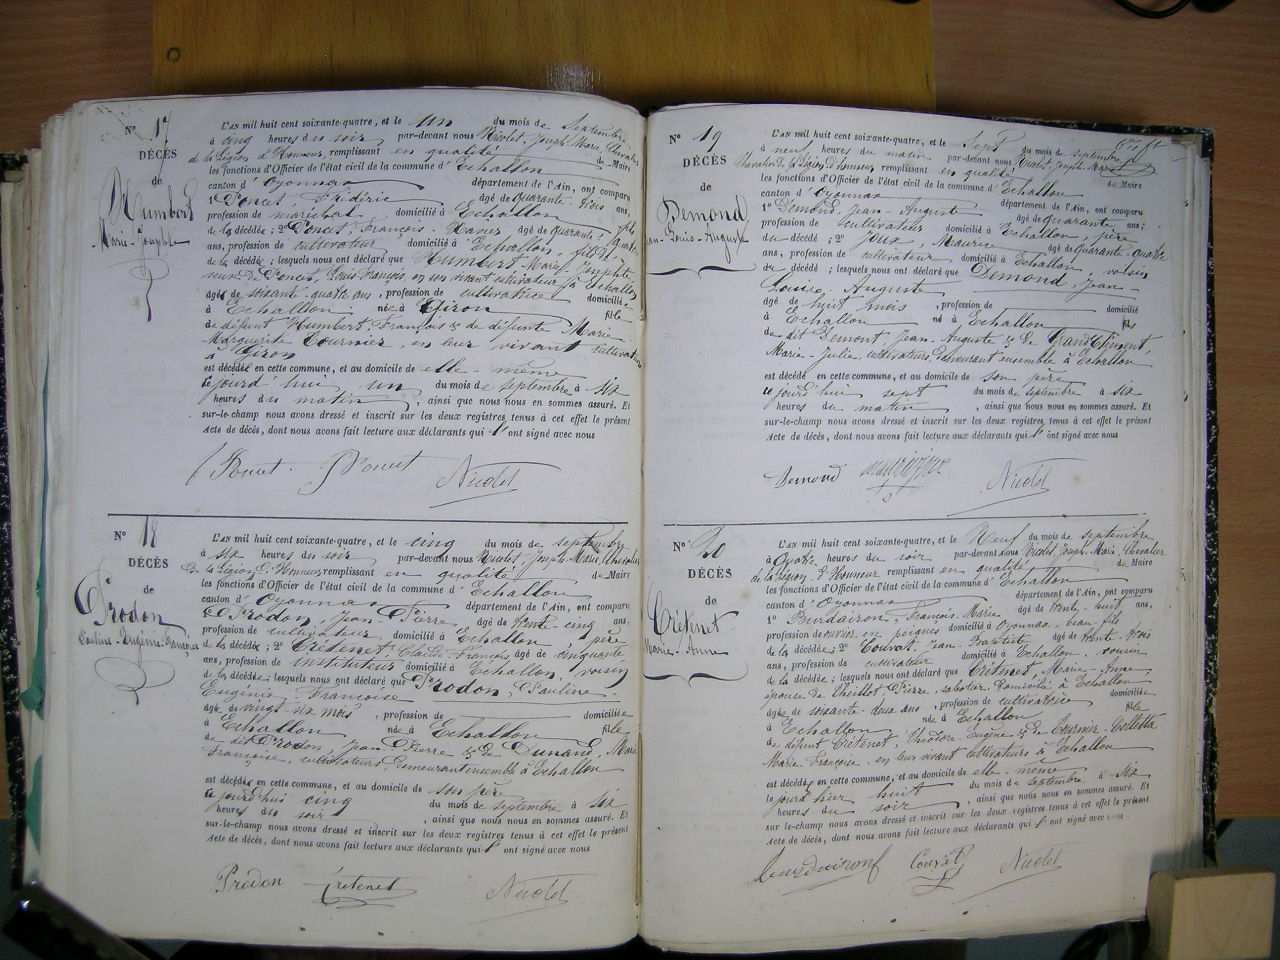 N° 17
DÉCÈS
de
Humbert
Marie-Josephte
L'an mil huit cent soixante-quatre, et le un du mois de Septembre
à cinq heures du soir par-devant nous Nicolet, Joseph-Marie, Chevalier
de la Légion d'Honneur, remplissant en qualité de Maire
les fonctions d'Officier de l'état civil de la commune d'Echallon
canton d'Oyonnax département de l'Ain, ont comparu
1° Poncet, Frédéric âgé de quarante-trois ans,
profession de maréchal domicilié à Echallon fils
de la décédée; 2° Poncet, François-Xavier âgé de quarante-quatre
ans, profession de cultivateur domicilié à Echallon, fils
de la décédée; lesquels nous ont déclaré que Humbert, Marie-Josephte
veuve de Poncet, Louis François, en son vivant cultivateur à Echallon
âgée de soixante-quatre ans, profession de cultivatrice domiciliée
à Echallon née à Giron fille
de défunt Humbert, François & de défunte Marie
Marguerite Tournier, en leur vivant cultivateurs
à Giron
est décédée en cette commune, et au domicile de elle-même
ce jourd'hui un du mois de septembre à six
heures du matin, ainsi que nous nous en sommes assuré. Et
sur-le-champ nous avons dressé et inscrit sur les deux registres tenus à cet effet le présent
acte de décès, dont nous avons fait lecture aux déclarants qui l'ont signé avec nous
Poncet Poncet Nicolet
N° 18
DÉCÈS
de
Prodon
Pauline-Eugénie-Françoise
L'an mil huit cent soixante-quatre, et le cinq du mois de septembre
à six heures du soir par-devant nous Nicolet, Joseph-Marie, Chevalier
de la Légion d'Honneur remplissant en qualité de Maire
les fonctions d'Officier de l'état civil de la commune d'Echallon
canton d'Oyonnax département de l'Ain, ont comparu
1° Prodon, Jean-Pierre âgé de trente-cinq ans,
profession de cultivateur domicilié à Echallon père
de la décédée; 2° Crétenet, Claude-François âgé de cinquante
ans, profession de instituteur domicilié à Echallon, voisin
de la décédée; lesquels nous ont déclaré que Prodon, Pauline-
Eugénie-Françoise
âgée de vingt-six mois, profession de domiciliée
à Echallon née à Echallon fille
de dit Prodon, Jean-Pierre & de Dunand, Marie
Françoise, cultivateurs, demeurant ensemble à Echallon
est décédée en cette commune, et au domicile de son père
ce jourd'hui cinq du mois de septembre à six
heures du soir, ainsi que nous nous en sommes assuré. Et
sur-le-champ nous avons dressé et inscrit sur les deux registres tenus à cet effet le présent
acte de décès, dont nous avons fait lecture aux déclarants qui l'ont signé avec nous
Prodon Crétenet Nicolet
N° 19
DÉCÈS
de
Demond
Jean-Louis-Auguste
L'an mil huit cent soixante-quatre, et le sept du mois de septembre
à neuf heures du matin par-devant nous Nicolet, Joseph-Marie
Chevalier de la Légion d'honneur remplissant en qualité de Maire
les fonctions d'Officier de l'état civil de la commune d'Echallon
canton d'Oyonnax département de l'Ain, ont comparu
1° Demond, Jean-Auguste âgé de quarante ans;
profession de cultivateur domicilié à Echallon, père
du décédé; 2° Joux, Maurice âgé de quarante-quatre
ans, profession de cultivateur domicilié à Echallon, voisin
du décédé; lesquels nous ont déclaré que Demond, Jean-
Louis-Auguste
âgé de huit mois, profession de domicilié
à Echallon né à Echallon fils
de dit Demont, Jean-Auguste & de Grandclément,
Marie-Julie, cultivateurs, demeurant ensemble à Echallon
est décédé en cette commune, et au domicile de son père
ce jourd'hui sept du mois de septembre à six
heures du matin, ainsi que nous nous en sommes assuré. Et
sur-le-champ nous avons dressé et inscrit sur les deux registres tenus à cet effet le présent
acte de décès, dont nous avons fait lecture aux déclarants qui l'ont signé avec nous
Demond Nicolet
N° 20
DÉCÈS
de
Crétenet
Marie-Anne
L'an mil huit cent soixante-quatre, et le Neuf du mois de septembre
à Quatre heures du soir par-devant nous Nicolet, Joseph-Marie, Chevalier
de la Légion d'Honneur remplissant en qualité de Maire
les fonctions d'Officier de l'état civil de la commune d'Echallon
canton d'Oyonnax département de l'Ain, ont comparu
1° Burdairon, François-Marie âgé de trente-huit ans,
profession de ouvrier en peignes domicilié à Oyonnax beau-fils
de la décédée; 2° Convat, Jean-Baptiste âgé de trente-trois
ans, profession de cultivateur domicilié à Echallon, cousin
de la décédée; lesquels nous ont déclaré que Crétenet, Marie-Anne
épouse de Pierre, sabotier domicilié à Echallon
âgée de soixante-deux ans, profession de cultivatrice domiciliée
à Echallon née à Echallon fille
de défunt Crétenet, Théodore Eugène & de Tournier-Billetta
Marie-Françoise, en leur vivant cultivateurs à Echallon
est décédée en cette commune, et au domicile de elle-même
le jourd'hier huit du mois de septembre à six
heures du soir, ainsi que nous nous en sommes assuré. Et
sur-le-champ nous avons dressé et inscrit sur les deux registres tenus à cet effet le présent
acte de décès, dont nous avons fait lecture aux déclarants qui l'ont signé avec nous
Burdairon Convat Nicolet